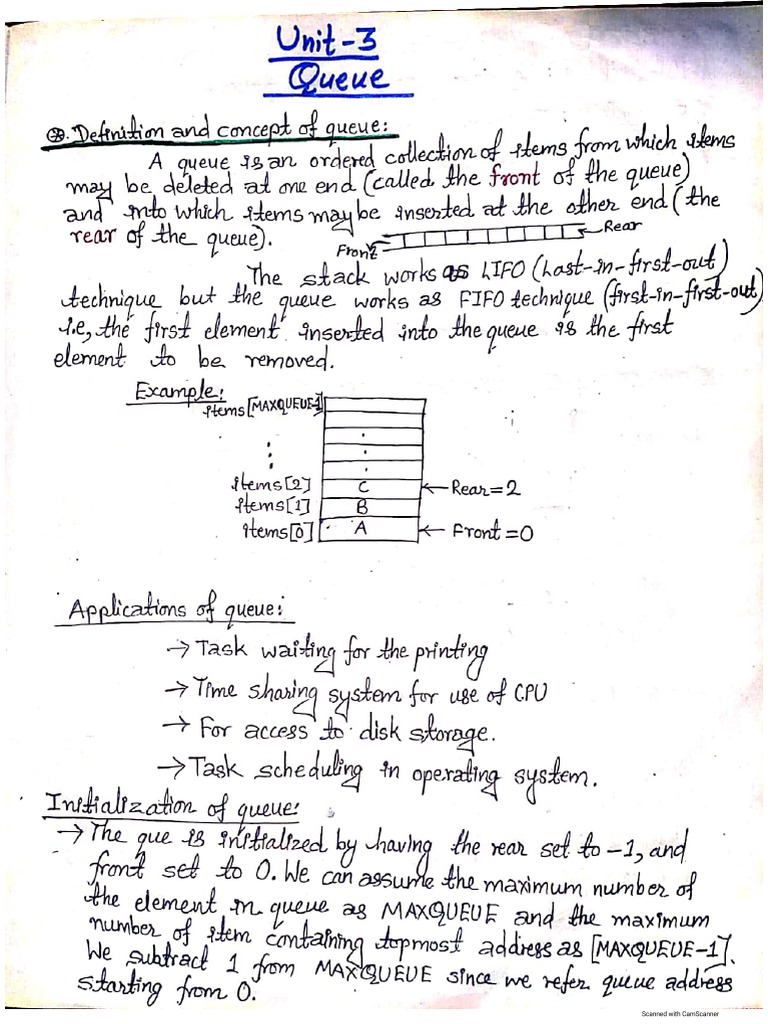 Unit-3
Queue
⊛. Definition and concept of queue:
A queue is an ordered collection of items from which items
may be deleted at one end (called the front of the queue)
and into which items may be inserted at the other end (the
rear of the queue).
Front
Rear
The stack works as LIFO (Last-in-first-out)
technique but the queue works as FIFO technique (first-in-first-out)
i.e, the first element inserted into the queue is the first
element to be removed.
Example:
items[MAXQUEUE-1]
items[2] C ← Rear=2
items[1] B
items[0] A ← Front=0
Applications of queue:
→ Task waiting for the printing
→ Time sharing system for use of CPU
→ For access to disk storage.
→ Task scheduling in operating system.
Initialization of queue:
→ The que is initialized by having the rear set to -1, and
front set to 0. We can assume the maximum number of
the element in queue as MAXQUEUE and the maximum
number of item containing topmost address as [MAXQUEUE-1].
We subtract 1 from MAXQUEUE since we refer queue address
starting from 0.
Scanned with CamScanner